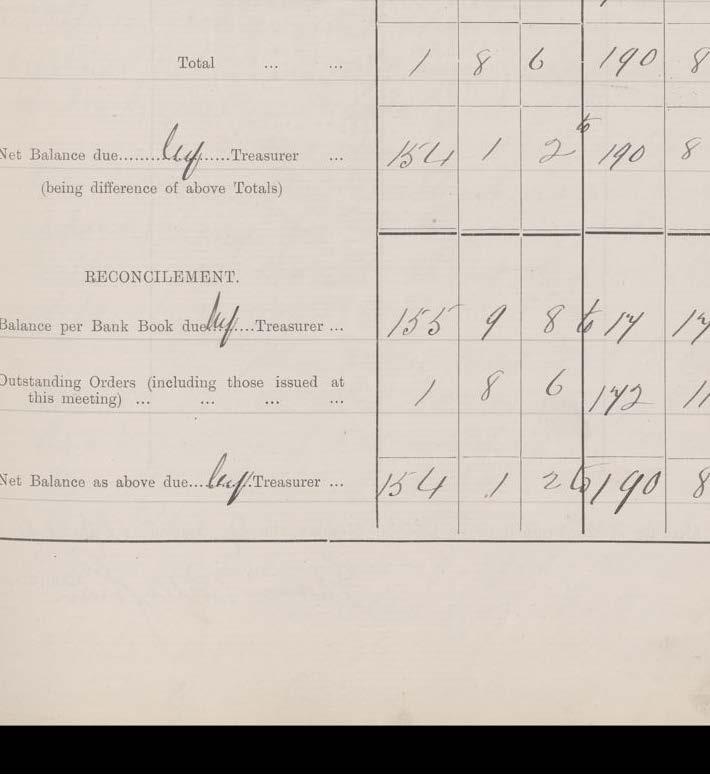 Total ... ... 1 8 6 190 8
to
Net Balance due........by......Treasurer ... 154 1 2 190 8
(being difference of above Totals)
RECONCILEMENT.
Balance per Bank Book due by....Treasurer ... 155 9 8 to 17 17
Outstanding Orders (including those issued at
this meeting) ... ... ... ... 1 8 6 172 11
Net Balance as above due...by.Treasurer ... 154 1 2 to 190 8